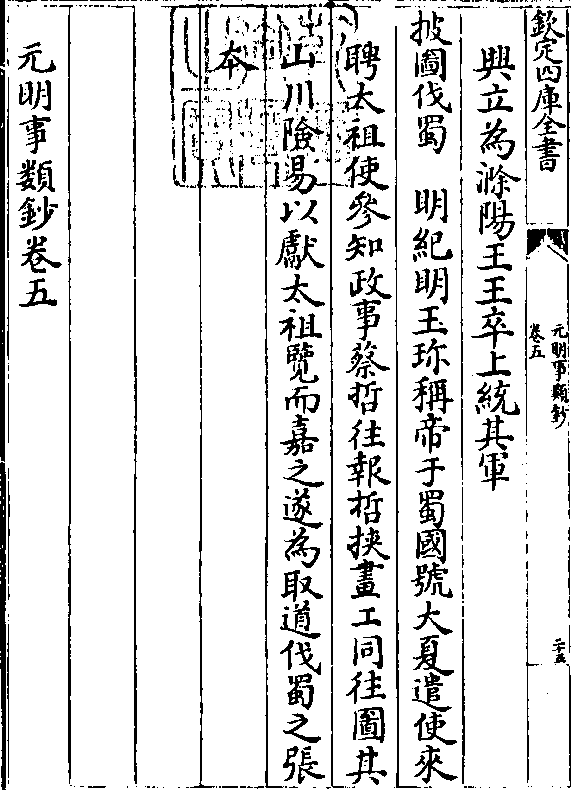 欽定四庫全書
元明事類鈔
卷五
二十五
興立為滁陽王王卒上統其軍
披圖伐蜀 明紀明玉珍稱帝于蜀國號大夏遣使來
聘太祖使參知政事蔡哲往報哲挾畫工同往圖其
山川險易以獻太祖覽而嘉之遂為取道伐蜀之張
本
元明事類鈔卷五